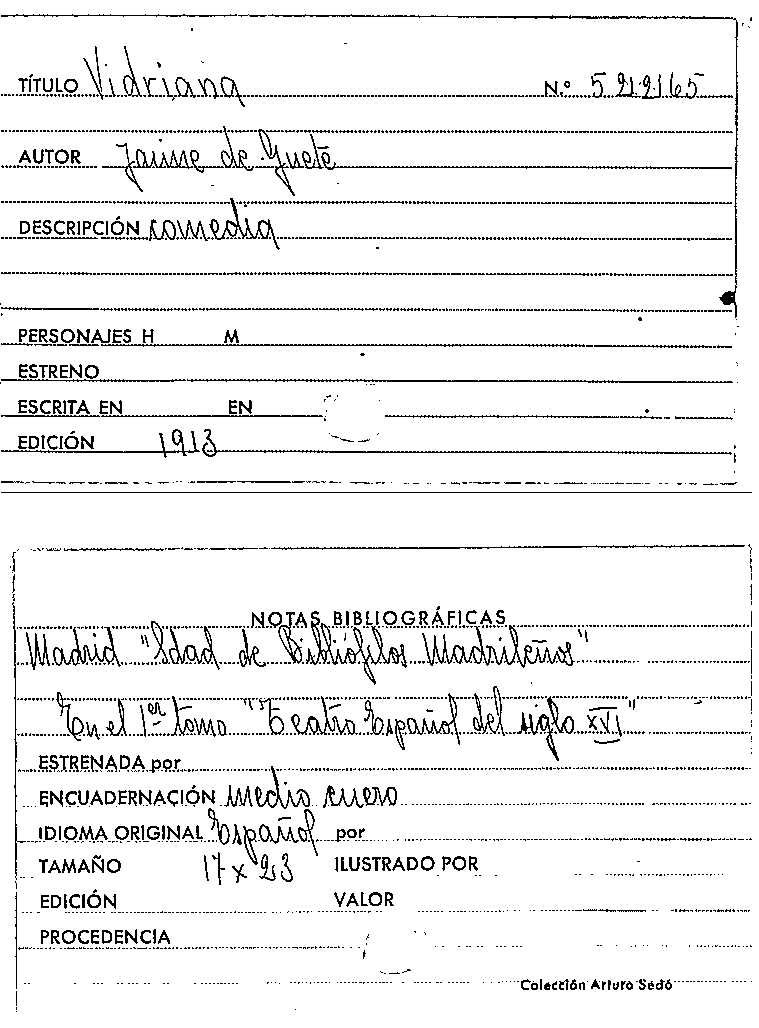 TÍTULO Vidriana N.º 522165
AUTOR Jaime de Guete
DESCRIPCIÓN comedia
PERSONAJES H M
ESTRENO
ESCRITA EN EN
EDICIÓN 1913
NOTAS BIBLIOGRÁFICAS
Madrid "Sdad de Bibliófilos Madrileños"
En el 1er tomo "Teatro Español del siglo XVI"
ESTRENADA por
ENCUADERNACIÓN medio cuero
IDIOMA ORIGINAL Español por
TAMAÑO 17 x 23 ILUSTRADO POR
EDICIÓN VALOR
PROCEDENCIA
Colección Arturo Sedó